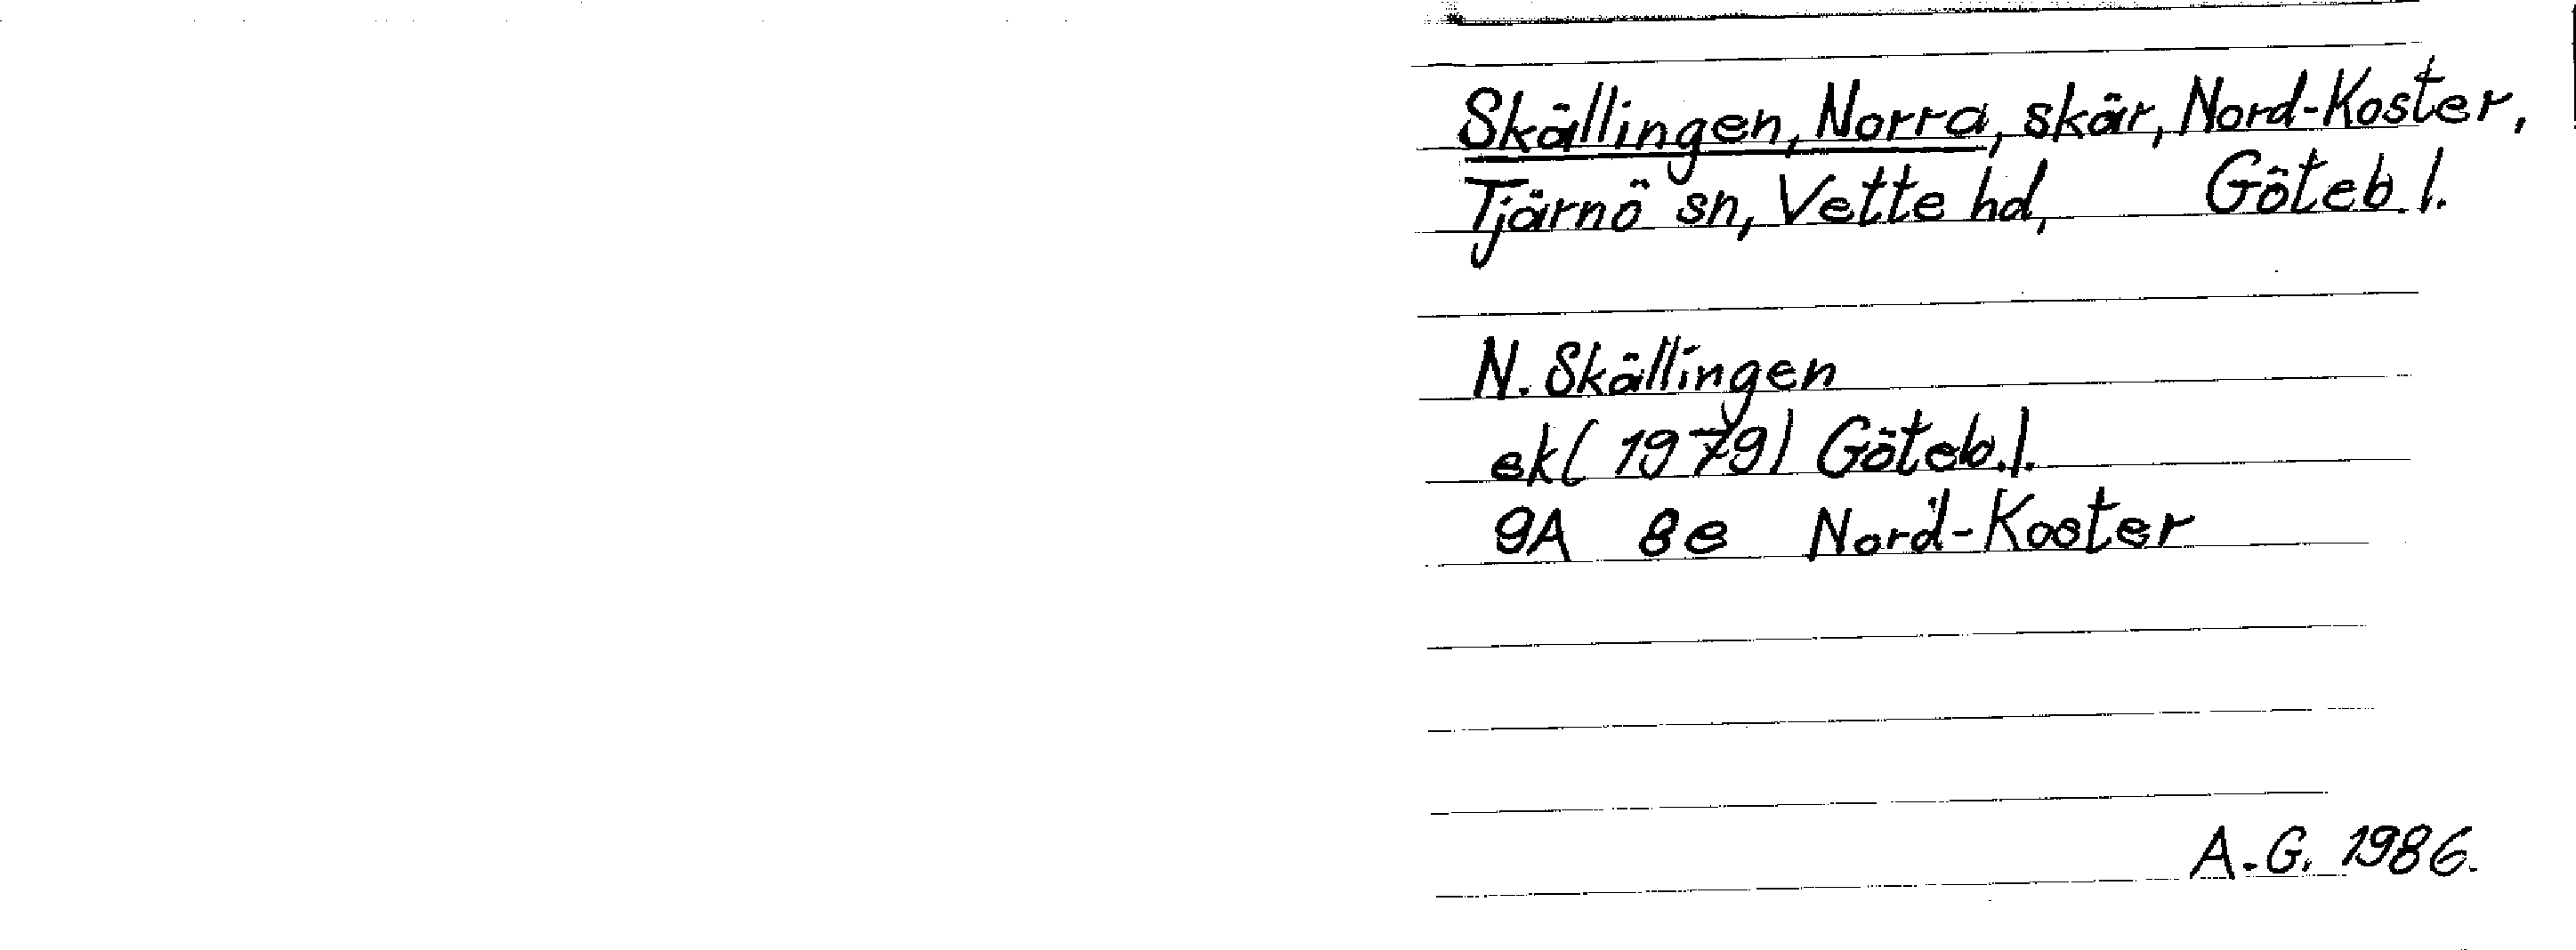 Skällingen, Norra, skär, Nord-Koster,
Tjärnö sn, Vette hd, Göteb. l.
N. Skällingen
ek (1979) Göteb. l.
9A 8e Nord-Koster
A.G. 1986.